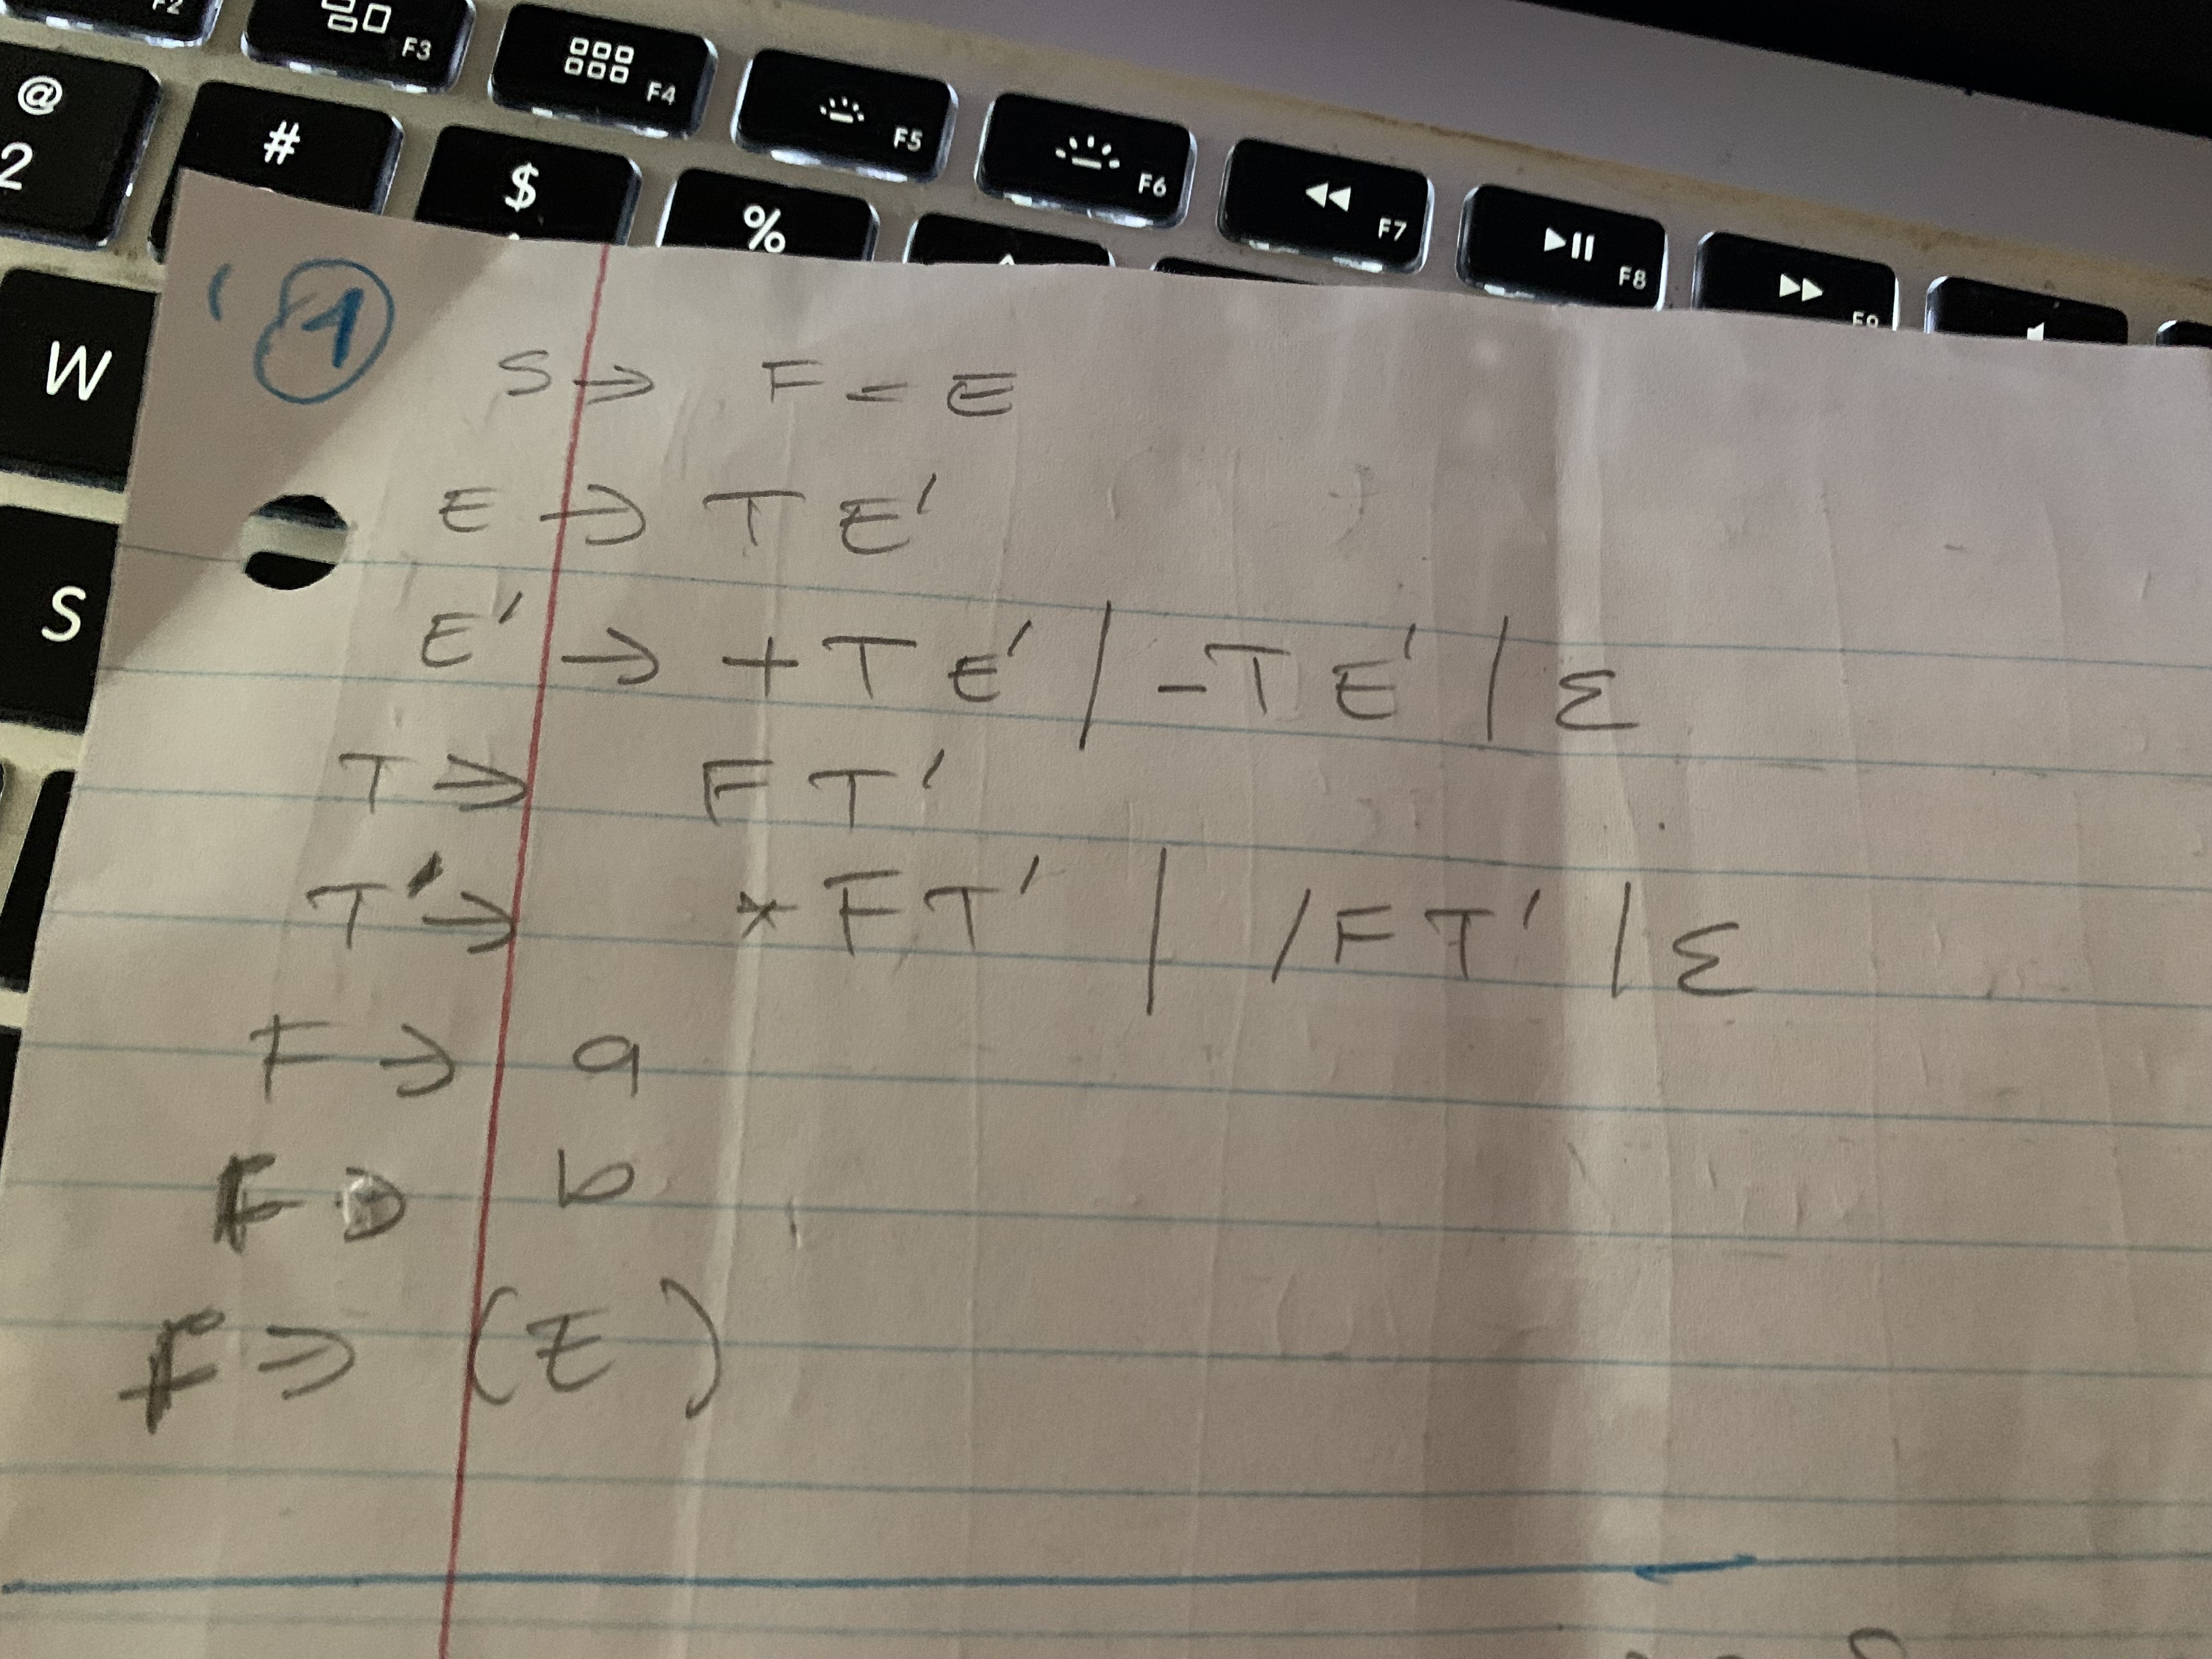 F2
F3
F4
F5
F6
F7
F8
F9
@
2
#
$
%
W
S
1
S → F = E
E → T E'
E' → + T E' | - T E' | ε
T → F T'
T' → * F T' | / F T' | ε
F → a
F → b
F → (E)